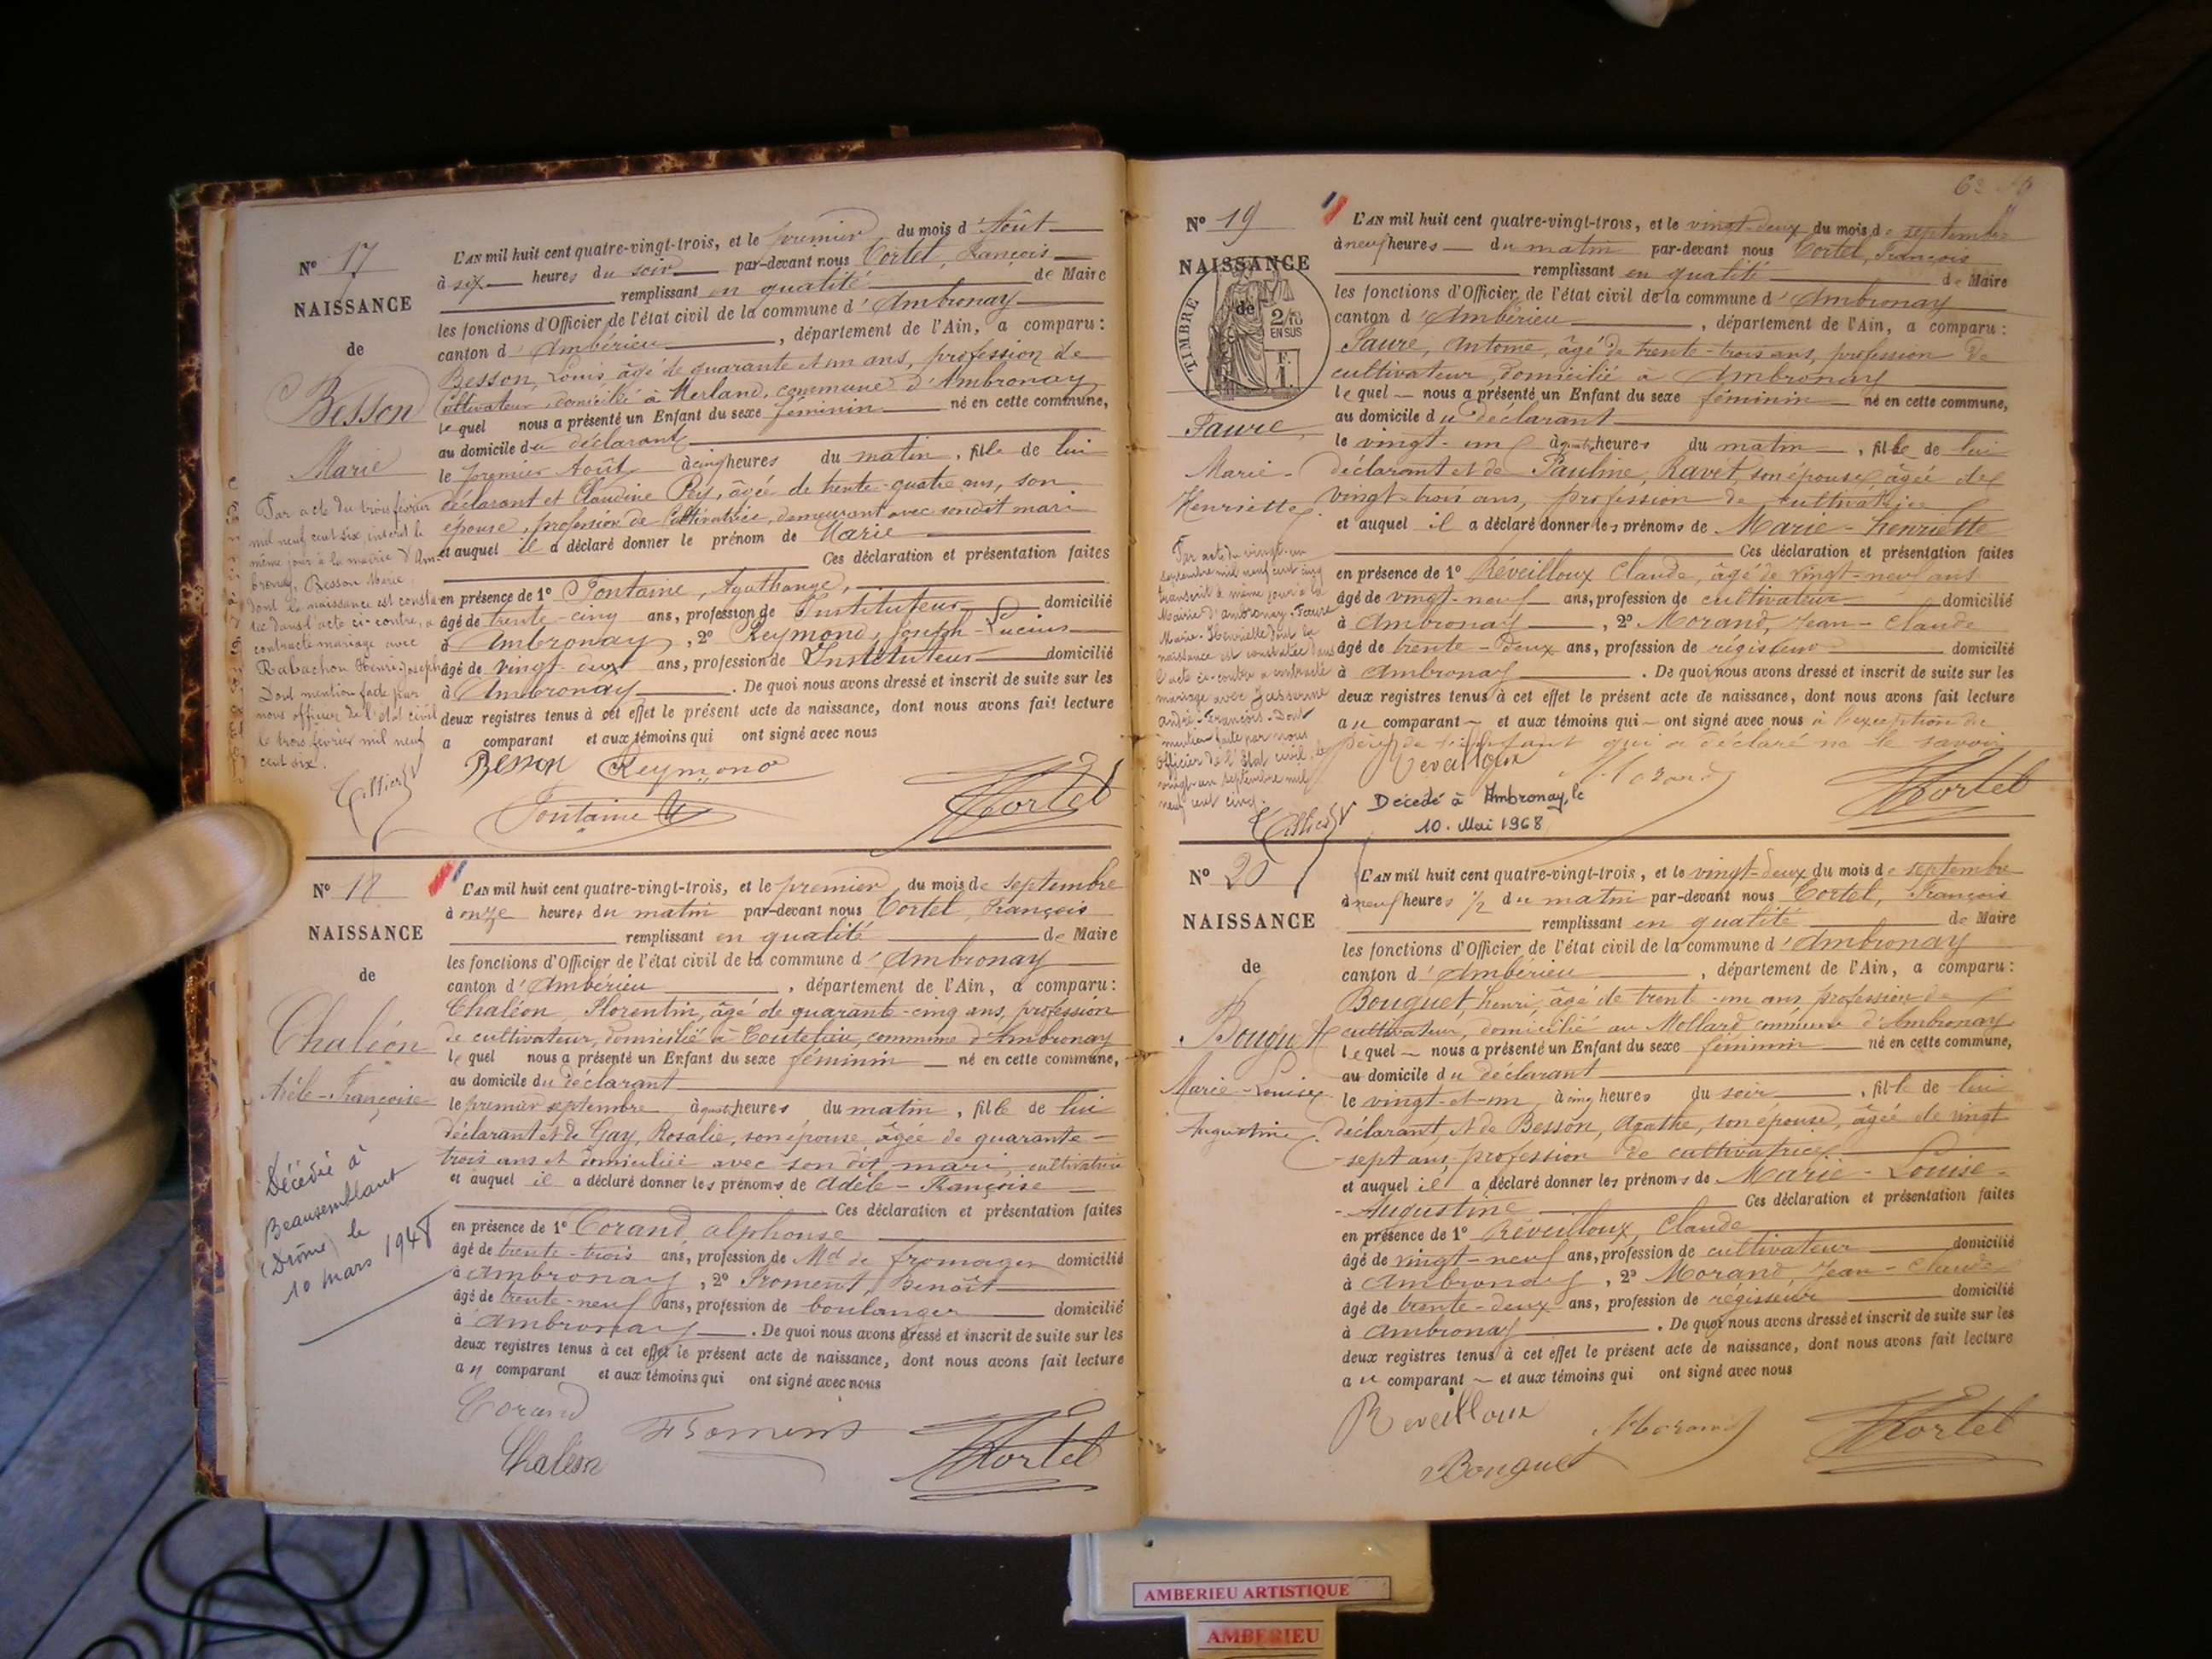 Nº 17
NAISSANCE
de
Besson
Marie
Par acte du trois février
mil neuf cent six, inscrit le
même jour à la mairie d'Am-
bronay, Besson Marie
dont la naissance est consta-
tée dans l'acte ci-contre, a
contracté mariage avec
Rabachon Henri-Joseph
Dont mention faite par
nous officier de l'état civil
le trois février mil neuf
cent six.
L'AN mil huit cent quatre-vingt-trois, et le premier du mois d'Août
à six heures du soir par-devant nous Tortel, François
remplissant en qualité de Maire
les fonctions d'Officier de l'état civil de la commune d'Ambronay
canton d'Ambérieu, département de l'Ain, a comparu:
Besson, Louis, âgé de quarante et un ans, profession de
Cultivateur, domicilié à Merland, commune d'Ambronay
lequel nous a présenté un Enfant du sexe féminin né en cette commune,
au domicile du déclarant
le premier Août à cinq heures du matin, fille de lui
déclarant et Claudine Rey, âgée de trente-quatre ans, son
épouse, profession de Cultivatrice, demeurant avec son dit mari
et auquel il a déclaré donner le prénom de Marie
Ces déclaration et présentation faites
en présence de 1º Fontaine, Agathange,
âgé de trente-cinq ans, profession de Instituteur domicilié
à Ambronay, 2º Reymond, Joseph-Lucien
âgé de vingt-deux ans, profession de Instituteur domicilié
à Ambronay. De quoi nous avons dressé et inscrit de suite sur les
deux registres tenus à cet effet le présent acte de naissance, dont nous avons fait lecture
a comparant et aux témoins qui ont signé avec nous
Besson Reymond
Fontaine Tortel
Nº 18
NAISSANCE
de
Chaléon
Adèle-Françoise
Décédée à
Beausemblant
(Drôme) le
10 mars 1948
L'AN mil huit cent quatre-vingt-trois, et le premier du mois de septembre
à onze heures du matin par-devant nous Tortel, François
remplissant en qualité de Maire
les fonctions d'Officier de l'état civil de la commune d'Ambronay
canton d'Ambérieu, département de l'Ain, a comparu:
Chaléon, Florentin, âgé de quarante-cinq ans, profession
de cultivateur, domicilié à Coutelieu, commune d'Ambronay
lequel nous a présenté un Enfant du sexe féminin né en cette commune,
au domicile du déclarant
le premier septembre, à quatre heures du matin, fille de lui
déclarant et de Gay, Rosalie, son épouse âgée de quarante-
trois ans et domiciliée avec son dit mari, cultivatrice
et auquel il a déclaré donner les prénoms de Adèle-Françoise
Ces déclaration et présentation faites
en présence de 1º Corand, alphonse
âgé de trente-trois ans, profession de Md de fromages domicilié
à Ambronay, 2º Froment, Benoît
âgé de trente-neuf ans, profession de boulanger domicilié
à Ambronay. De quoi nous avons dressé et inscrit de suite sur les
deux registres tenus à cet effet le présent acte de naissance, dont nous avons fait lecture
au comparant et aux témoins qui ont signé avec nous
Corand Froment Tortel
Chaléon
Nº 19
NAISSANCE
de
TIMBRE
2/10
EN SUS
F.
1.
Faure,
Marie-
Henriette
Par acte du vingt-un
septembre mil neuf cent cinq
transcrit le même jour à la
Mairie d'Ambronay, Faure
Marie-Henriette dont la
naissance est constatée dans
l'acte ci-contre a contracté
mariage avec
André-François. Dont
mention faite par nous
Officier de l'Etat civil, le
vingt-un septembre mil
neuf cent cinq.
L'AN mil huit cent quatre-vingt-trois, et le vingt-deux du mois de septembre
à neuf heures du matin par-devant nous Tortel, François
remplissant en qualité de Maire
les fonctions d'Officier de l'état civil de la commune d'Ambronay
canton d'Ambérieu, département de l'Ain, a comparu:
Faure, Antoine, âgé de trente-trois ans, profession de
cultivateur, domicilié à Ambronay
lequel nous a présenté un Enfant du sexe féminin né en cette commune,
au domicile du déclarant
le vingt-un à quatre heures du matin, fille de lui
déclarant et de Pauline, Ravet, son épouse, âgée de
vingt-trois ans, profession de cultivatrice
et auquel il a déclaré donner les prénoms de Marie-henriette
Ces déclaration et présentation faites
en présence de 1º Réveilloux Claude, âgé de vingt-neuf ans
âgé de vingt-neuf ans, profession de cultivateur domicilié
à Ambronay, 2º Morand, Jean-Claude
âgé de trente-deux ans, profession de régisseur domicilié
à Ambronay. De quoi nous avons dressé et inscrit de suite sur les
deux registres tenus à cet effet le présent acte de naissance, dont nous avons fait lecture
au comparant et aux témoins qui ont signé avec nous à l'exception du
père de l'enfant qui a déclaré ne le savoir
Reveilloux Morand Tortel
Décédé à Ambronay, le
10. Mai 1968
Nº 20
NAISSANCE
de
Bouguet
Marie-Louise
Augustine
L'AN mil huit cent quatre-vingt-trois, et le vingt-deux du mois de septembre
à neuf heures 1/2 du matin par-devant nous Tortel, François
remplissant en qualité de Maire
les fonctions d'Officier de l'état civil de la commune d'Ambronay
canton d'Ambérieu, département de l'Ain, a comparu:
Bouguet, henri, âgé de trente-un ans, profession de
cultivateur, domicilié au Mollard, commune d'Ambronay
lequel nous a présenté un Enfant du sexe féminin né en cette commune,
au domicile du déclarant
le vingt-et-un, à cinq heures du soir, fille de lui
déclarant et de Besson, Agathe, son épouse, âgée de vingt
-sept ans, profession de cultivatrice
et auquel il a déclaré donner les prénoms de Marie-Louise-
-Augustine Ces déclaration et présentation faites
en présence de 1º Réveilloux, Claude
âgé de vingt-neuf ans, profession de cultivateur domicilié
à Ambronay, 2º Morand, Jean-Claude
âgé de trente-deux ans, profession de régisseur domicilié
à Ambronay. De quoi nous avons dressé et inscrit de suite sur les
deux registres tenus à cet effet le présent acte de naissance, dont nous avons fait lecture
au comparant et aux témoins qui ont signé avec nous
Reveilloux Morand Tortel
Bouguet
AMBERIEU ARTISTIQUE
AMBERIEU